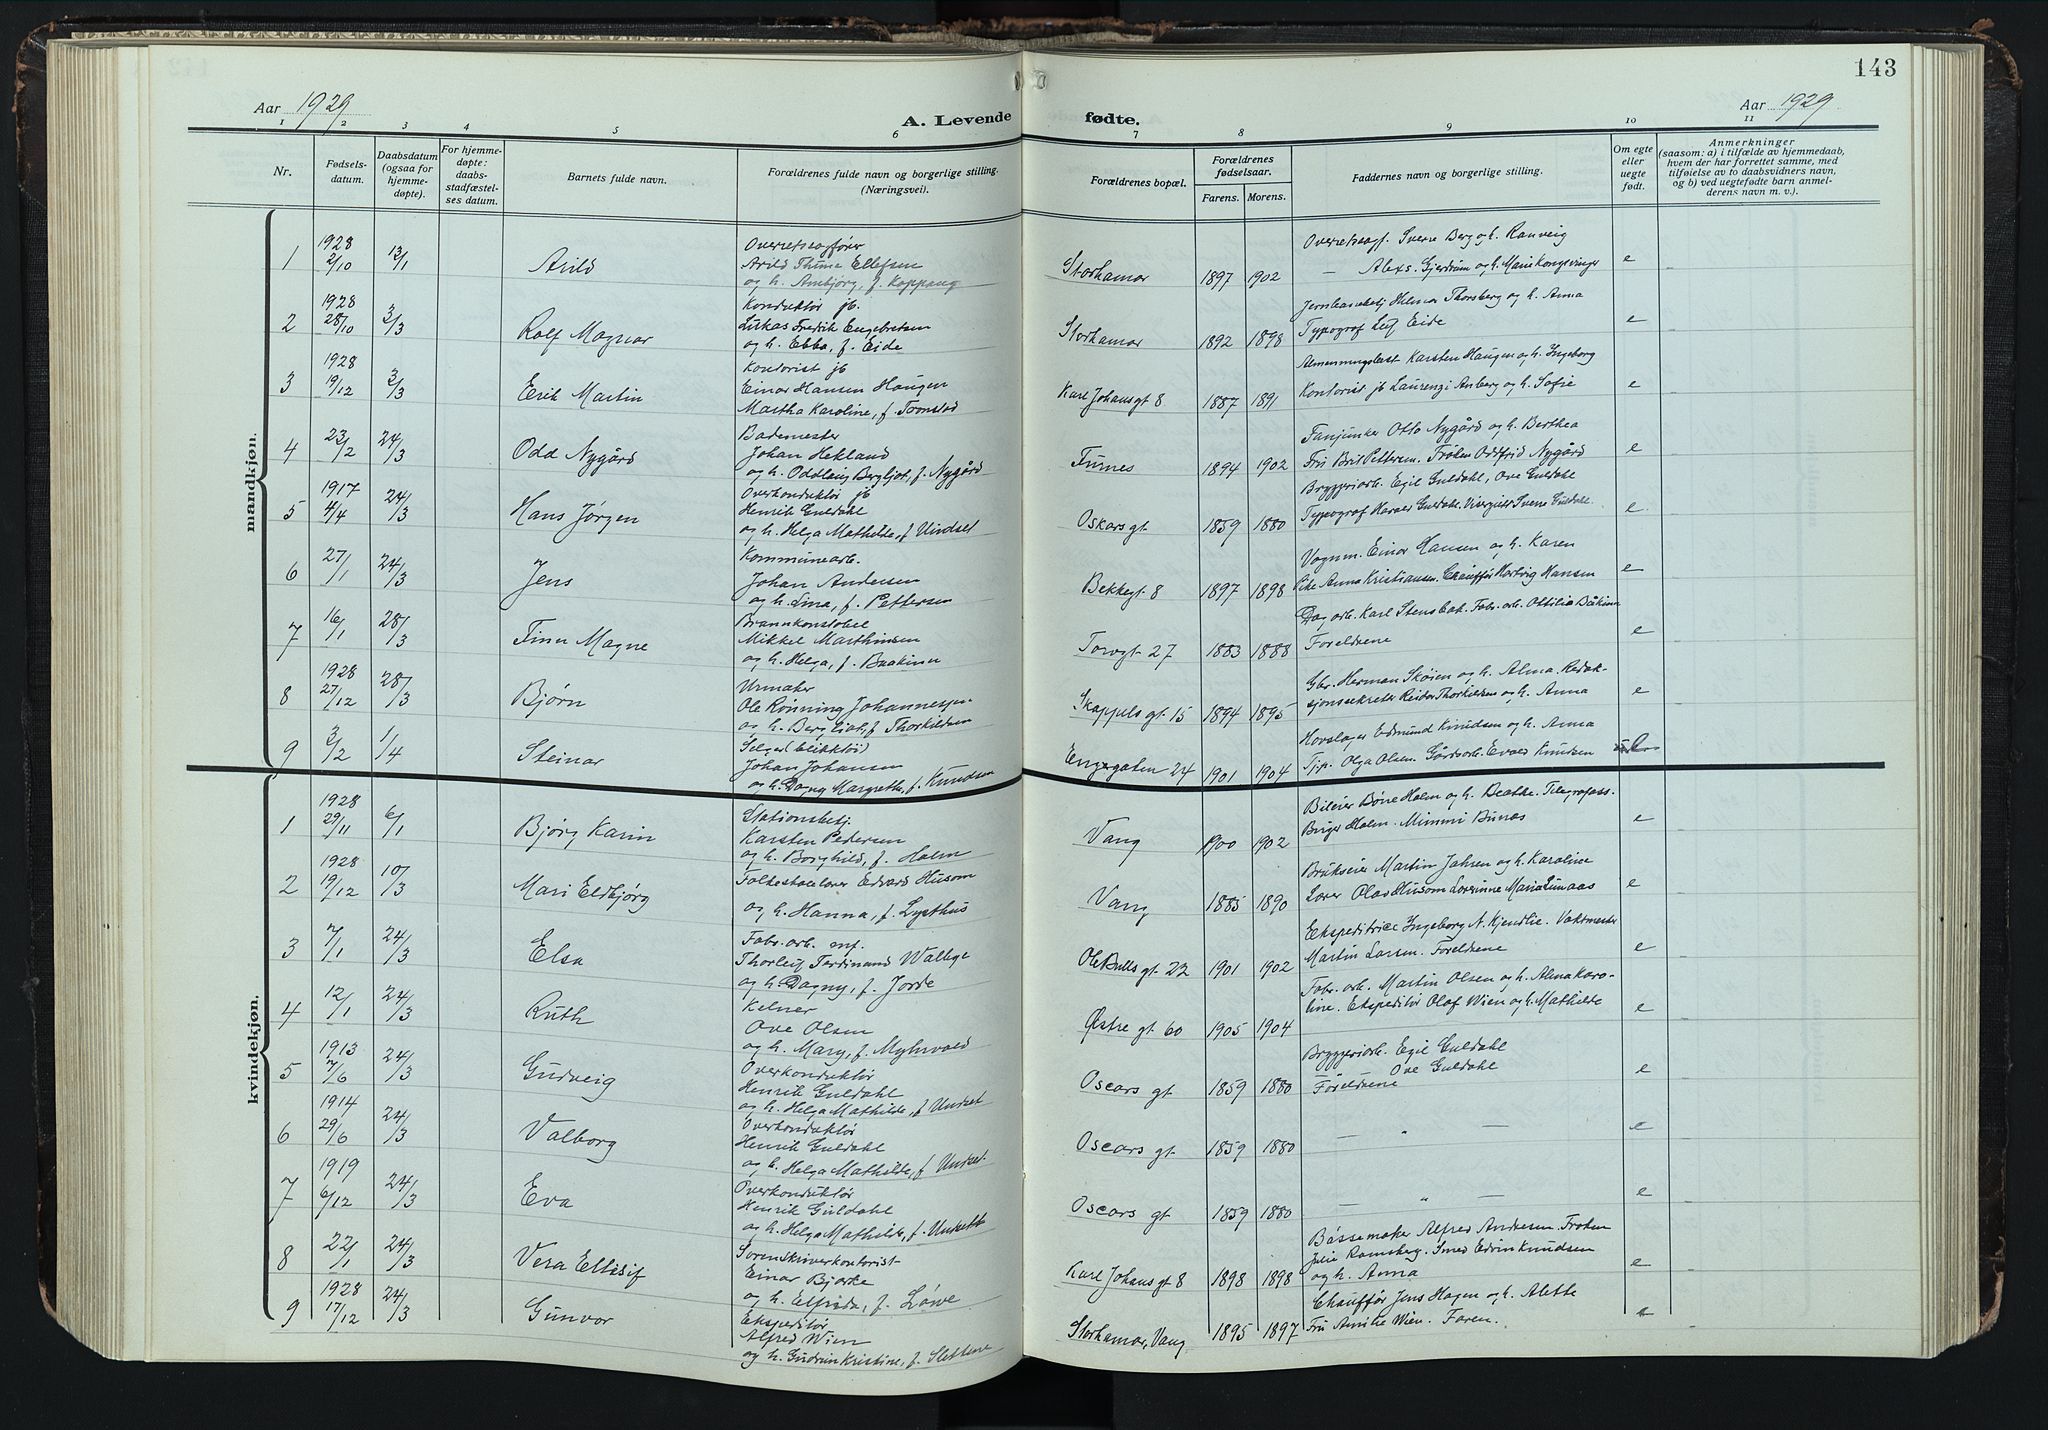 143
Aar 1929
A. Levende fødte.
Aar 1929
1 2 3 4 5 6 7 8 9 10 11
Nr.
Fødsels-
datum.
Daabsdatum
(ogsaa for
hjemme-
døpte).
For hjemme-
døpte:
daabs-
stadfæstel-
ses datum.
Barnets fulde navn.
Forældrenes fulde navn og borgerlige stilling.
(Næringsvei).
Forældrenes bopæl.
Forældrenes
fødselsaar.
Farens. Morens.
Faddernes navn og borgerlige stilling.
Om egte
eller
uegte
født.
Anmerkninger
(saasom: a) i tilfælde av hjemmedaab,
hvem der har forrettet samme, med
tilføielse av to daabsvidners navn,
og b) ved uegtefødte barn anmel-
derens navn m. v.).
mandkjøn.
1 1928 2/10 13/1 Arild
Overretssagfører
Arild Thune Ellefsen
og h. Ambjørg, f. Koppang
Storhamar 1897 1902
Overretssagf. Sverre Berg og h. Ranveig
— Alexs. Gjerdrum og h. Marie Kongsvinger
e
2 1928 28/10 3/3 Rolf Magnar
Konduktør jb.
Lukas Fredrik Engebretsen
og h. Ebba, f. Eide
Storhamar 1892 1898
Jernbanebetj Helmar Thorsberg og h. Anna
Typograf Leif Eide
e
3 1928 19/12 3/3 Erik Martin
Kontorist jb
Einar Hansen Haugen
Martha Karoline, f. Tronstad
Karl Johansgt 8 1887 1891
Almenningsbest Karsten Haugen og h. Ingeborg
Kontorist jb Laurenzi Anberg og h. Sofie
e
4 23/2 24/3 Odd Nygård
Bademester
Johan Hekland
og h. Oddlaug Bergljot, f. Nygård
Furnes 1894 1902
Fanjunker Otto Nygård og h. Berthea
Fru Brit Pettersen. Frøken Oddfrid Nygård
e
5 1917 4/4 24/3 Hans Jørgen
Overkonduktør jb
Henrik Guldahl
og h. Helga Mathilde, f. Undset
Oskars gt. 1859 1880
Bryggeriarb. Egil Guldahl, Ove Guldahl
Typograf Harald Guldahl. Visergutt Sverre Guldahl.
e
6 27/1 24/3 Jens
Kommunearb.
Johan Andersen
og h. Lina, f. Pettersen
Bekkegt 8 1897 1898
Vognm. Einar Hansen og h. Karen
Pike Anna Kristiansen. Chauffør Hartvig Hansen
e
7 16/1 28/3 Finn Magne
Brannkonstabel
Mikkel Marthinsen
og h. Helga, f. Baakinn
Torvgt 27 1883 1888
Dag arb. Karl Stensbat. Fabr. arb. Ottilia Båkinn
Foreldrene
e
8 1928 27/12 28/3 Bjørn
Urmaker
Ole Rønning Johannessen
og h. Bergliot, f Thorkildsen
Skappels gt. 15 1894 1895
Gbr. Herman Skøien og h. Alma. Redak-
sjonssekretær Reidar Thorkildsen og h. Anna
e
9 3/2 1/4 Steinar
Selger (blikktøi)
Johan Johansen
og h. Dagny Margrethe, f. Knudsen
Engegaten 24 1901 1904
Hovslager Edmund Knudsen og h. Anna
Tj.p. Olga Olsen. Gårdsarb. Evald Knudsen
kvindekjøn.
1 1928 29/11 6/1 Bjørg Karin
Stationsbetj.
Karsten Pedersen
og h. Borghild, f. Holm
Vang 1900 1902
Bileier Børre Holm og h. Beathe. Telegrafass.
Birger Holm. Mimmi Bunæs
e
2 1928 19/12 10/3 Mari Eldbjørg
Folkeskolelærer Edvard Husom
og h. Hanna, f. Lysthus
Vang 1885 1890
Brukseier Martin Jahren og h. Karoline
Lærer Olav Husom Lærerinne Maria Limaas
e
3 7/1 24/3 Elsa
Fabr. arb. mf.
Thorleif Ferdinand Wallege
og h. Dagny, f. Jorde
Ole Bulls gt. 22 1901 1902
Ekspeditrice Ingeborg A. Kjendlie. Vaktmester
Martin Larsen. Foreldrene
e
4 12/1 24/3 Ruth
Kelner
Ove Olsen
og h. Mary, f. Myhrvold
Østre gt 60 1905 1904
Fabr. arb. Martin Olsen og h. Alma Karo-
line. Ekspeditør Olaf Wien og h. Mathilde
e
5 1913 7/6 24/3 Gudveig
Overkonduktør
Henrik Guldahl
og h. Helga Mathilde, f Undset
Oscars gt 1859 1880
Bryggeriarb. Egil Guldahl
— Ove Guldahl
Foreldrene
e
6 1914 29/6 24/3 Valborg
Overkonduktør
Henrik Guldahl
og h. Helga Mathilde, f Undset
Oscars gt. 1859 1880
— " —
e
7 1919 6/12 24/3 Eva
Overkonduktør
Henrik Guldahl
og h. Helga Mathilde, f. Undset
Oscars gt 1859 1880
— " —
e
8 22/1 24/3 Vera Ellisif
Sorenskriverkontorist
Einar Bjerke
og h. Elfrida, f. Løwe
Karl Johans gt 8 1898 1898
Bøssemaker Alfred Andresen. Frøken
Julie Ramsberg. Smed Edvin Knudsen
og h. Anna
e
9 1928 17/12 24/3 Gunvor
Ekspeditør
Alfred Wien
og h. Gudrun Kristine, f. Slettene
Storhamar, Vang 1895 1897
Chauffør Jens Hagen og h. Alette
Fru Amalie Wien. Faren.
e